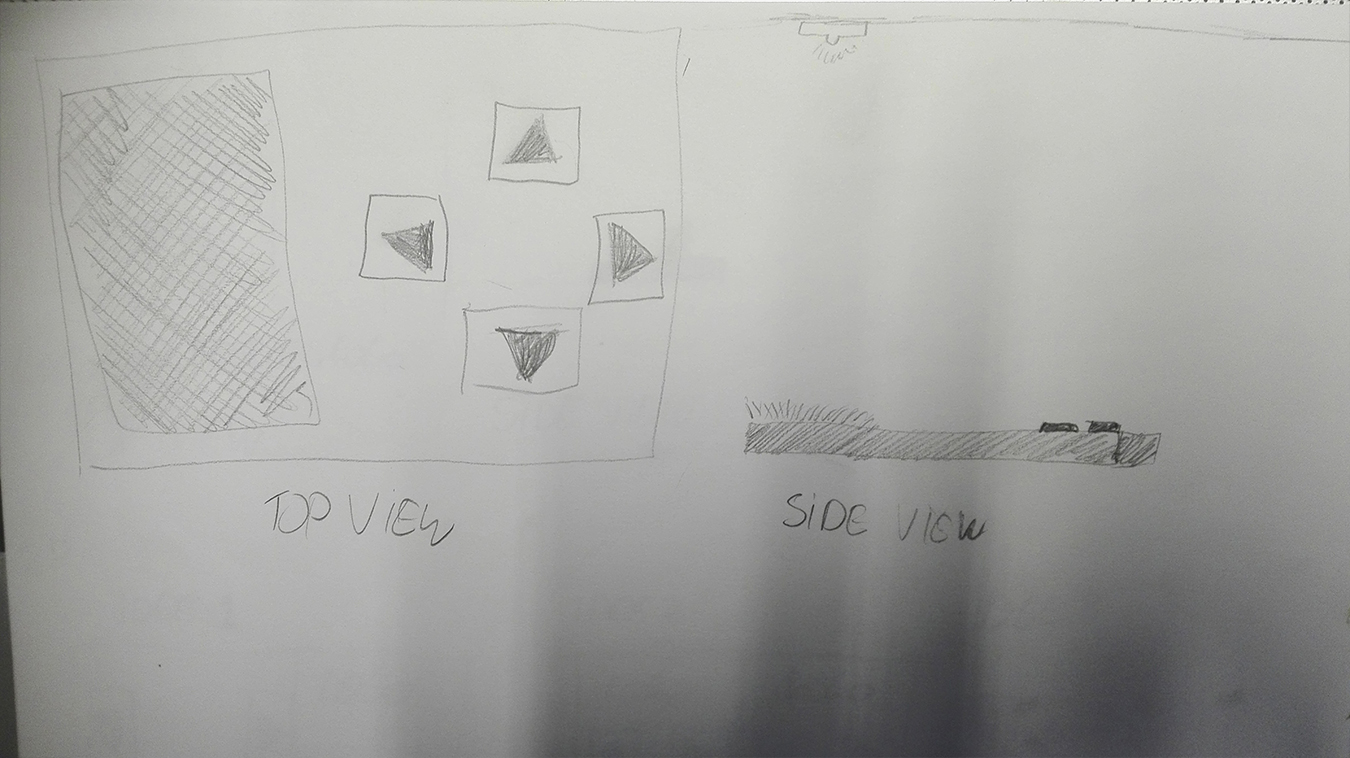 TOP ViEW
SiDE ViEW